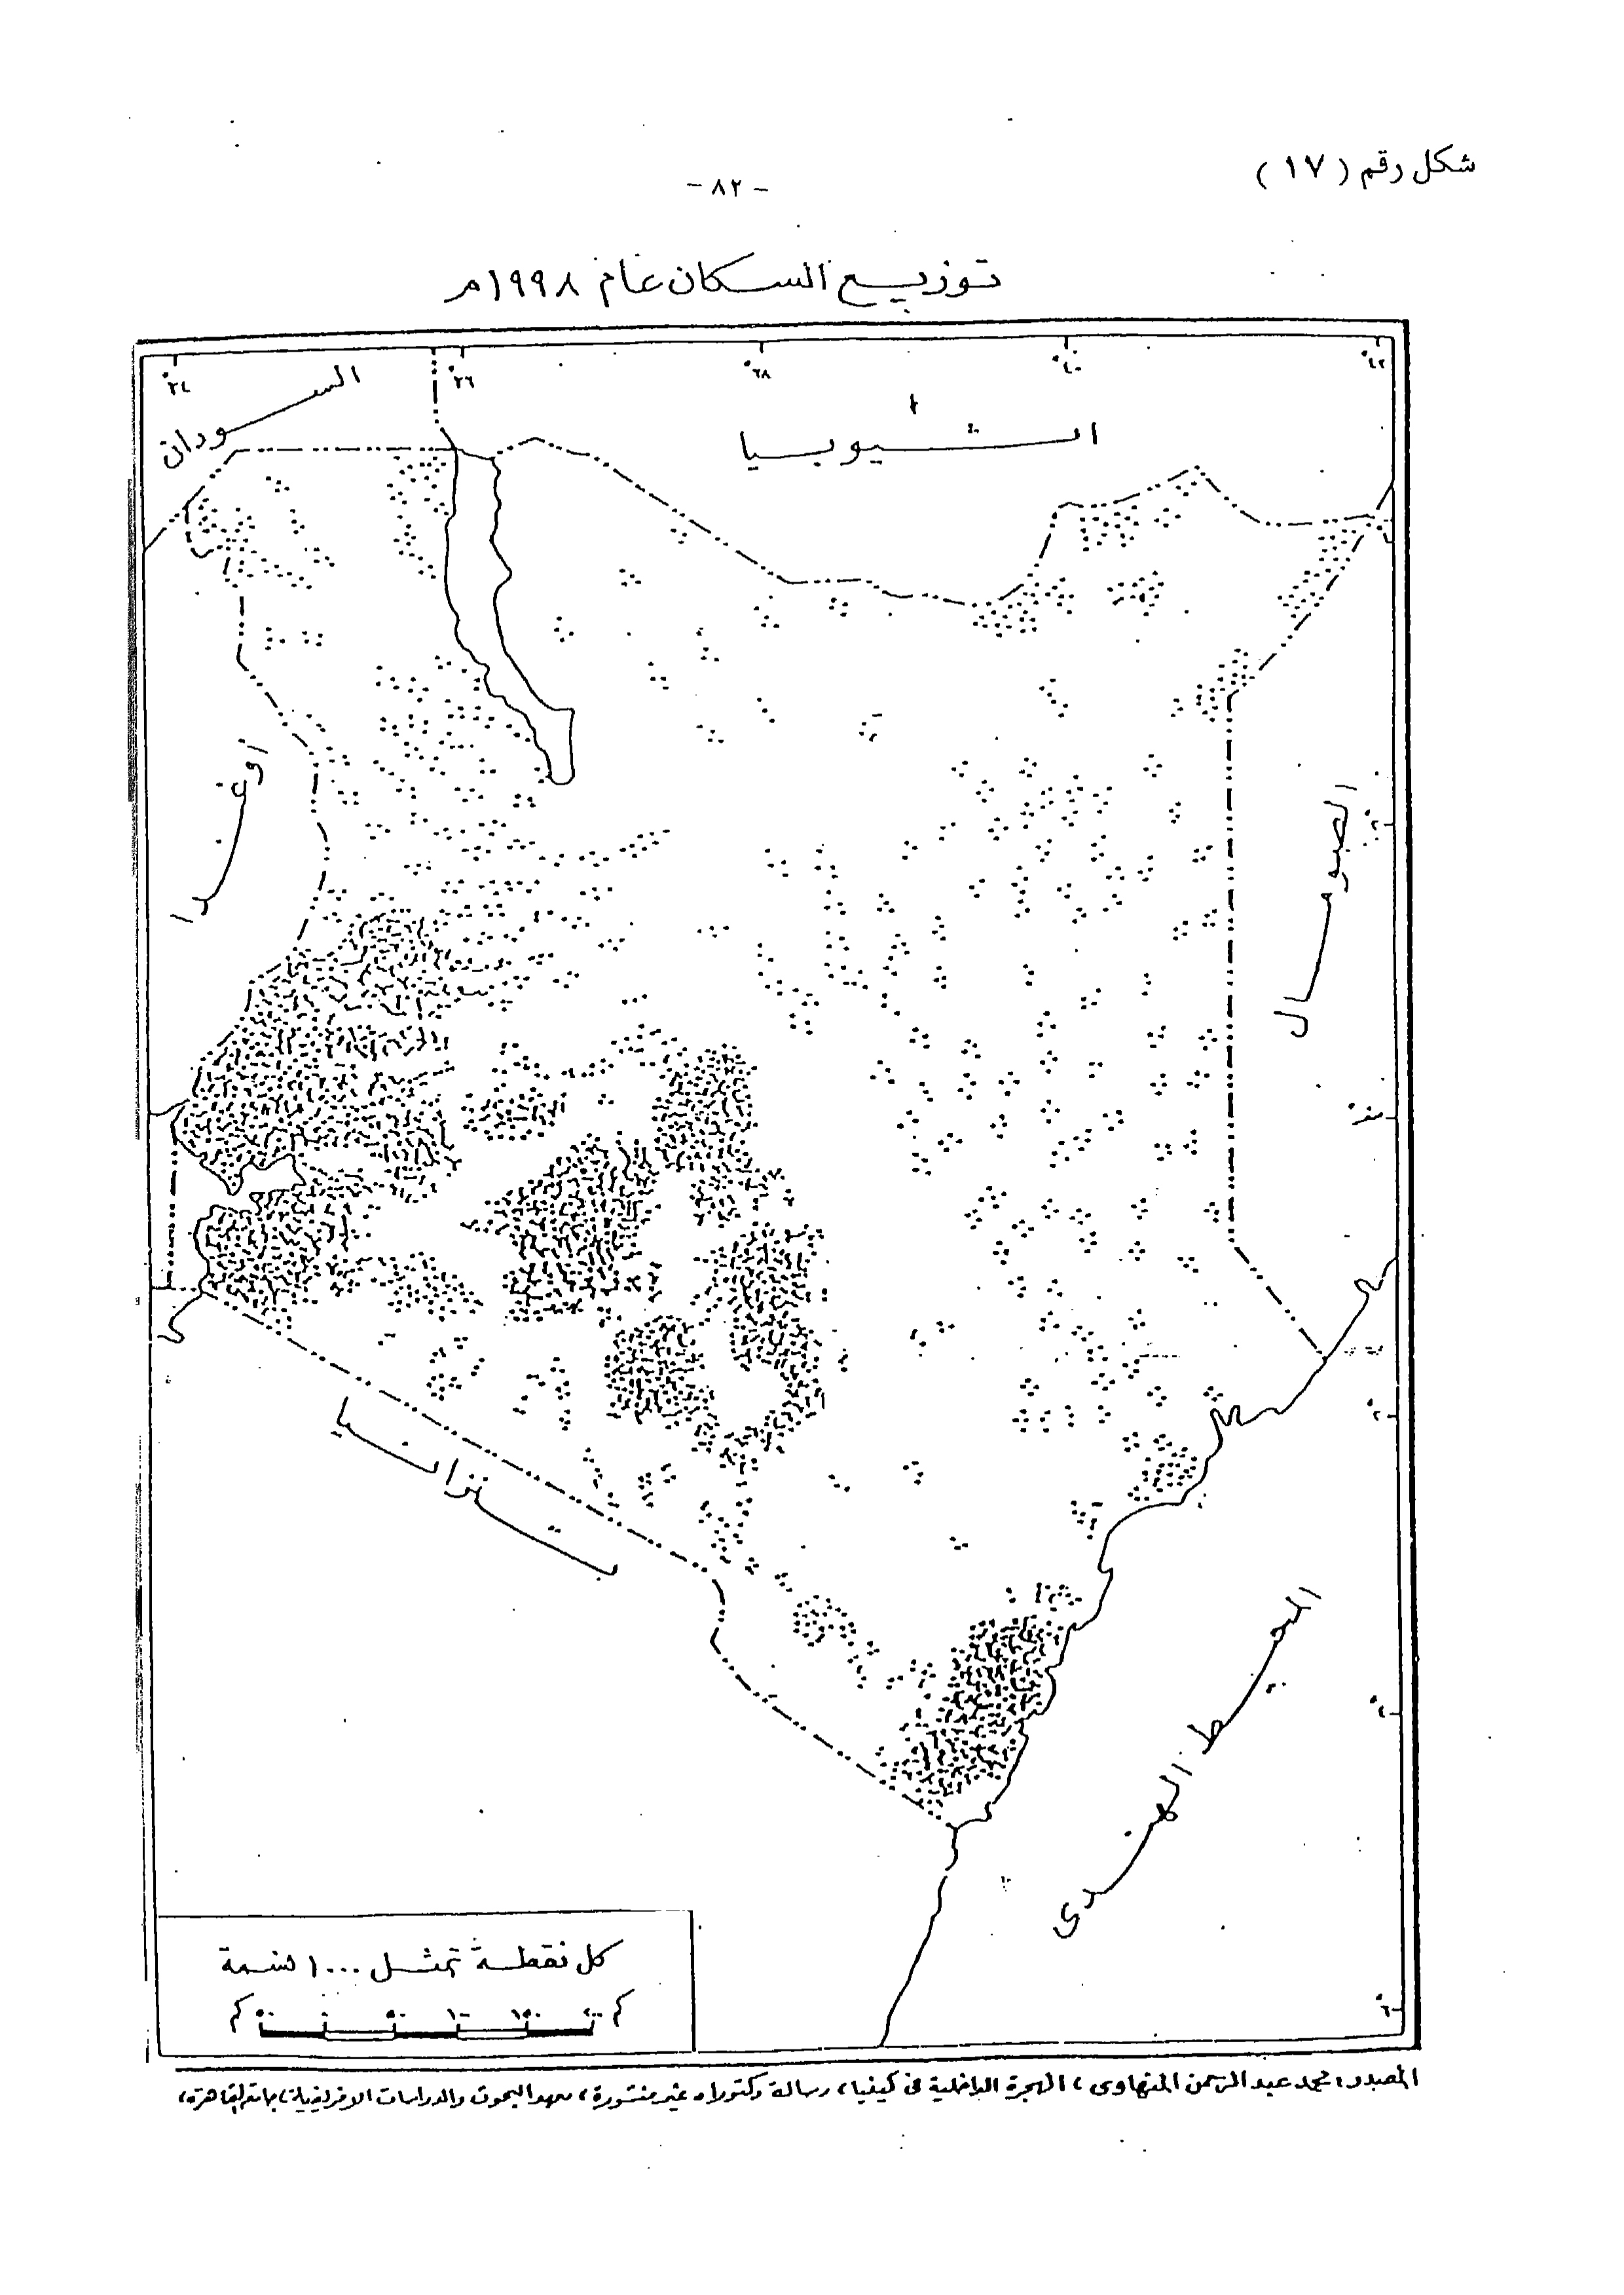 شكل رقم ( ١٧ )
- ٨٢ -
توزيع السكان عام ١٩٩٨م
٣٤° ٣٦° ٣٨° ٤٠° ٤٢°
السودان
اثيوبيا
اوغندا
الصومال
٢°
صفر°
٢°
تنزانيا
المحيط الهندى
٤°
٦°
كل نقطة تمثل ١٠٠٠ نسمة
كم ٥٠ ٠ ٥٠ ١٠٠ ١٥٠ ٢٠٠ كم
المصدر: محمد عبد الرحمن ، الهجرة الداخلية فى كينيا ، رسالة دكتوراه غير منشورة ، معهد البحوث والدراسات الافريقية ، جامعة القاهرة ،